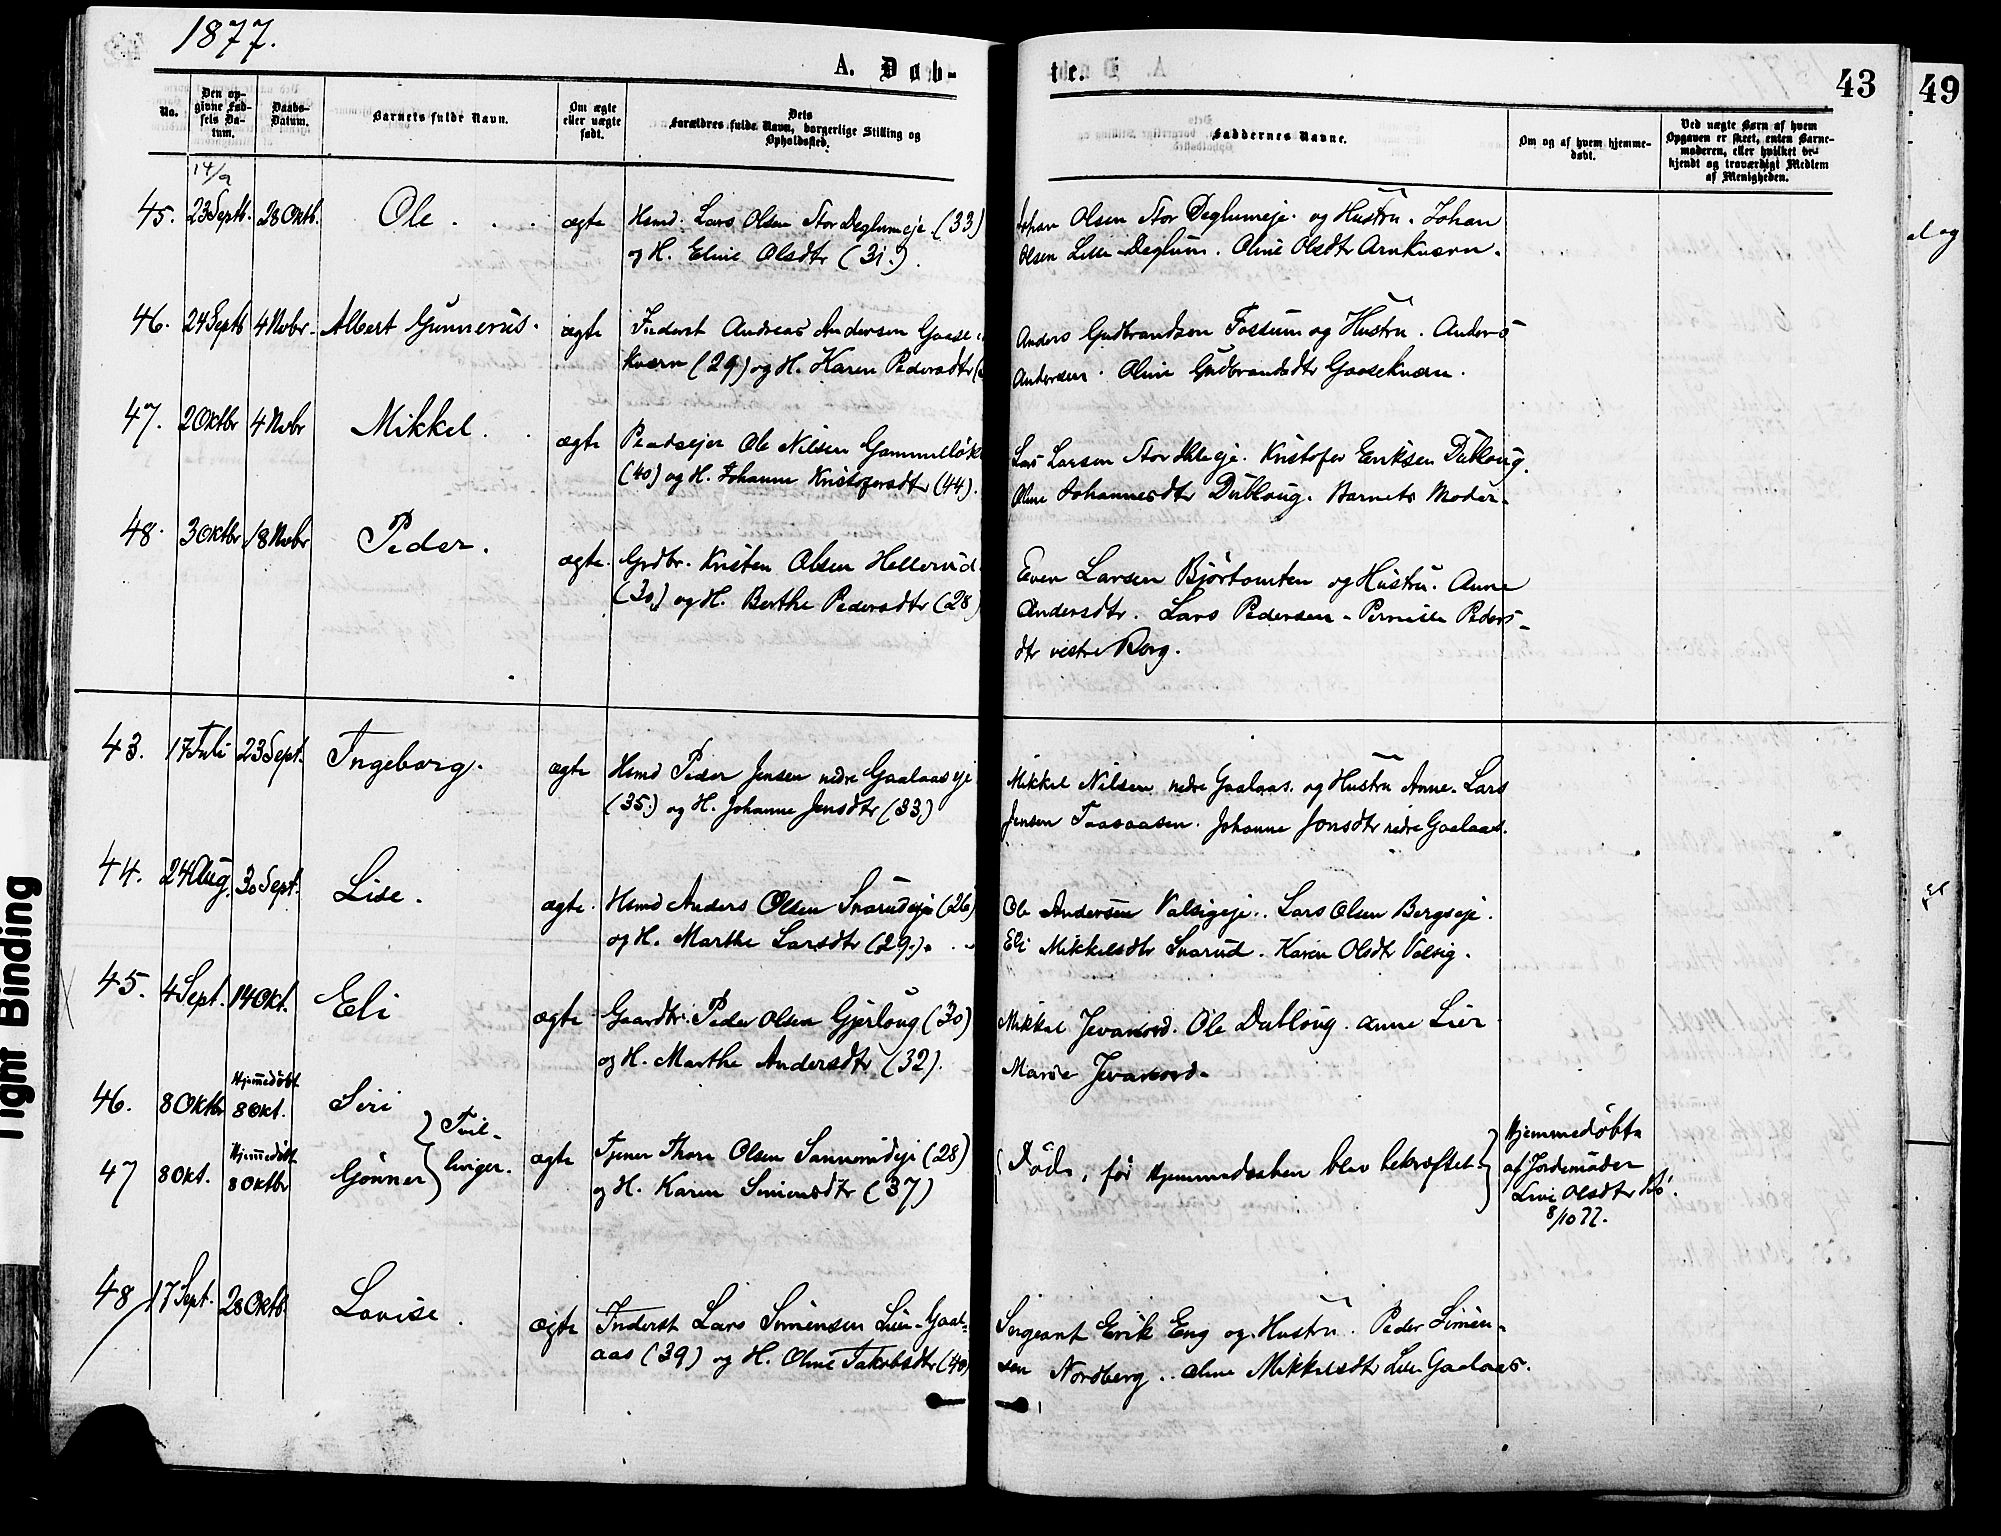 1877.
A. Døb-
te.
43
49
No.
Den op-
givne Fød-
sels Da-
tum.
Daabs-
Datum.
Barnets fulde Navn.
Om ægte
eller uægte
født.
Dets
Forældres fulde Navn, borgerlige Stilling og
Opholdssted.
Faddernes Navne.
Om og af hvem hjemme-
døbt.
Ved uægte Børn af hvem
Opgaven er skeet, enten Barne-
moderen, eller hvilket be-
kjendt og troværdigt Medlem
af Menigheden.
14/9
45. 23 Septb. 28 Oktb. Ole ægte Hsmd. Lars Olsen Stor Deglumeje (33)
og H. Eline Olsdtr (31.).
Johan Olsen Stor Deglumeje. og Hustru. Johan
Olsen Lille Deglum. Oline Olsdtr Arnkværn.
46. 24 Septb 4 Novbr. Albert Gunnerius. ægte Inderst Andreas Andersen Gaase-
kværn (29) og H. Karen Pedersdtr
Anders Gudbrandsen Fossum og Hustru. Anders
Andersen. Oline Gudbrandsdtr Gaasekværn.
47. 2 Oktbr 4 Novbr Mikkel. ægte Pladsejer Ole Nilsen Gammelløk
(40) og H. Johanne Kristofersdtr (44).
Lars Larsen Stor eje. Kristofer Eriksen Dubloug.
Oline Johannesdtr Dubloug. Barnets Moder.
48. 3 Oktbr 18 Novbr Peder. ægte. Grdbr. Kristen Olsen Hellerud.
(30) og H. Berthe Pedersdtr (28)
Even Larsen Bjørtomten og Hustru. Anne
Andersdtr. Lars Pedersen. Pernille Peders-
dtr vestre Berg.
43. 17 Juli 23 Sept. Ingeborg. ægte Hsmd Peder Jensen nedre Gaalaas eje
(35.) og H. Johanne Jensdtr (33)
Mikkel Nilsen nedre Gaalaas. og Hustru Anne. Lars
Jensen Taasaasen. Johanne Jonsdtr nedre Gaalaas.
44. 24 Aug. 30 Sept. Lise. ægte. Hsmd Anders Olsen Snarudeje (26)
og H. Marthe Larsdtr (29.).
Ole Andersen Valsigeje.. Lars Olsen Bergseje.
Eli Mikkelsdtr Snarud. Karen Olsdtr Valsig.
45. 4 Sept. 14 Okt. Eli ægte Gaardbr. Peder Olsen Gjerloug (30)
og H. Marthe Andersdtr (32).
Mikkel Jevanord. Ole Dubloug. Anne Lier
Marie Jevanord.
46. 8 Oktbr Hjemmedøbt
8 Okt. Siri
Tvil-
47 8 Okt. Hjemmedøbt
8 Oktbr Gunner linger. ægte Tjener Thore Olsen Sannerudeje (28)
og H. Karen Simensdtr (37)
Døde, før Hjemmedaaben blev bekræftet.
Hjemmedøbte
af Jordemoder
Live Olsdtr
8/10 77.
48 17 Sept. 28 Oktb. Lovise. ægte Inderst Lars Simensen Lille-Gaal-
aas (39) og H. Oline Jakobsdtr (40)
Sergeant Erik Eng og Hustru. Peder Simen-
sen Nordberg.. Oline Mikkelsdtr Lille Gaalaas.
Tight Binding